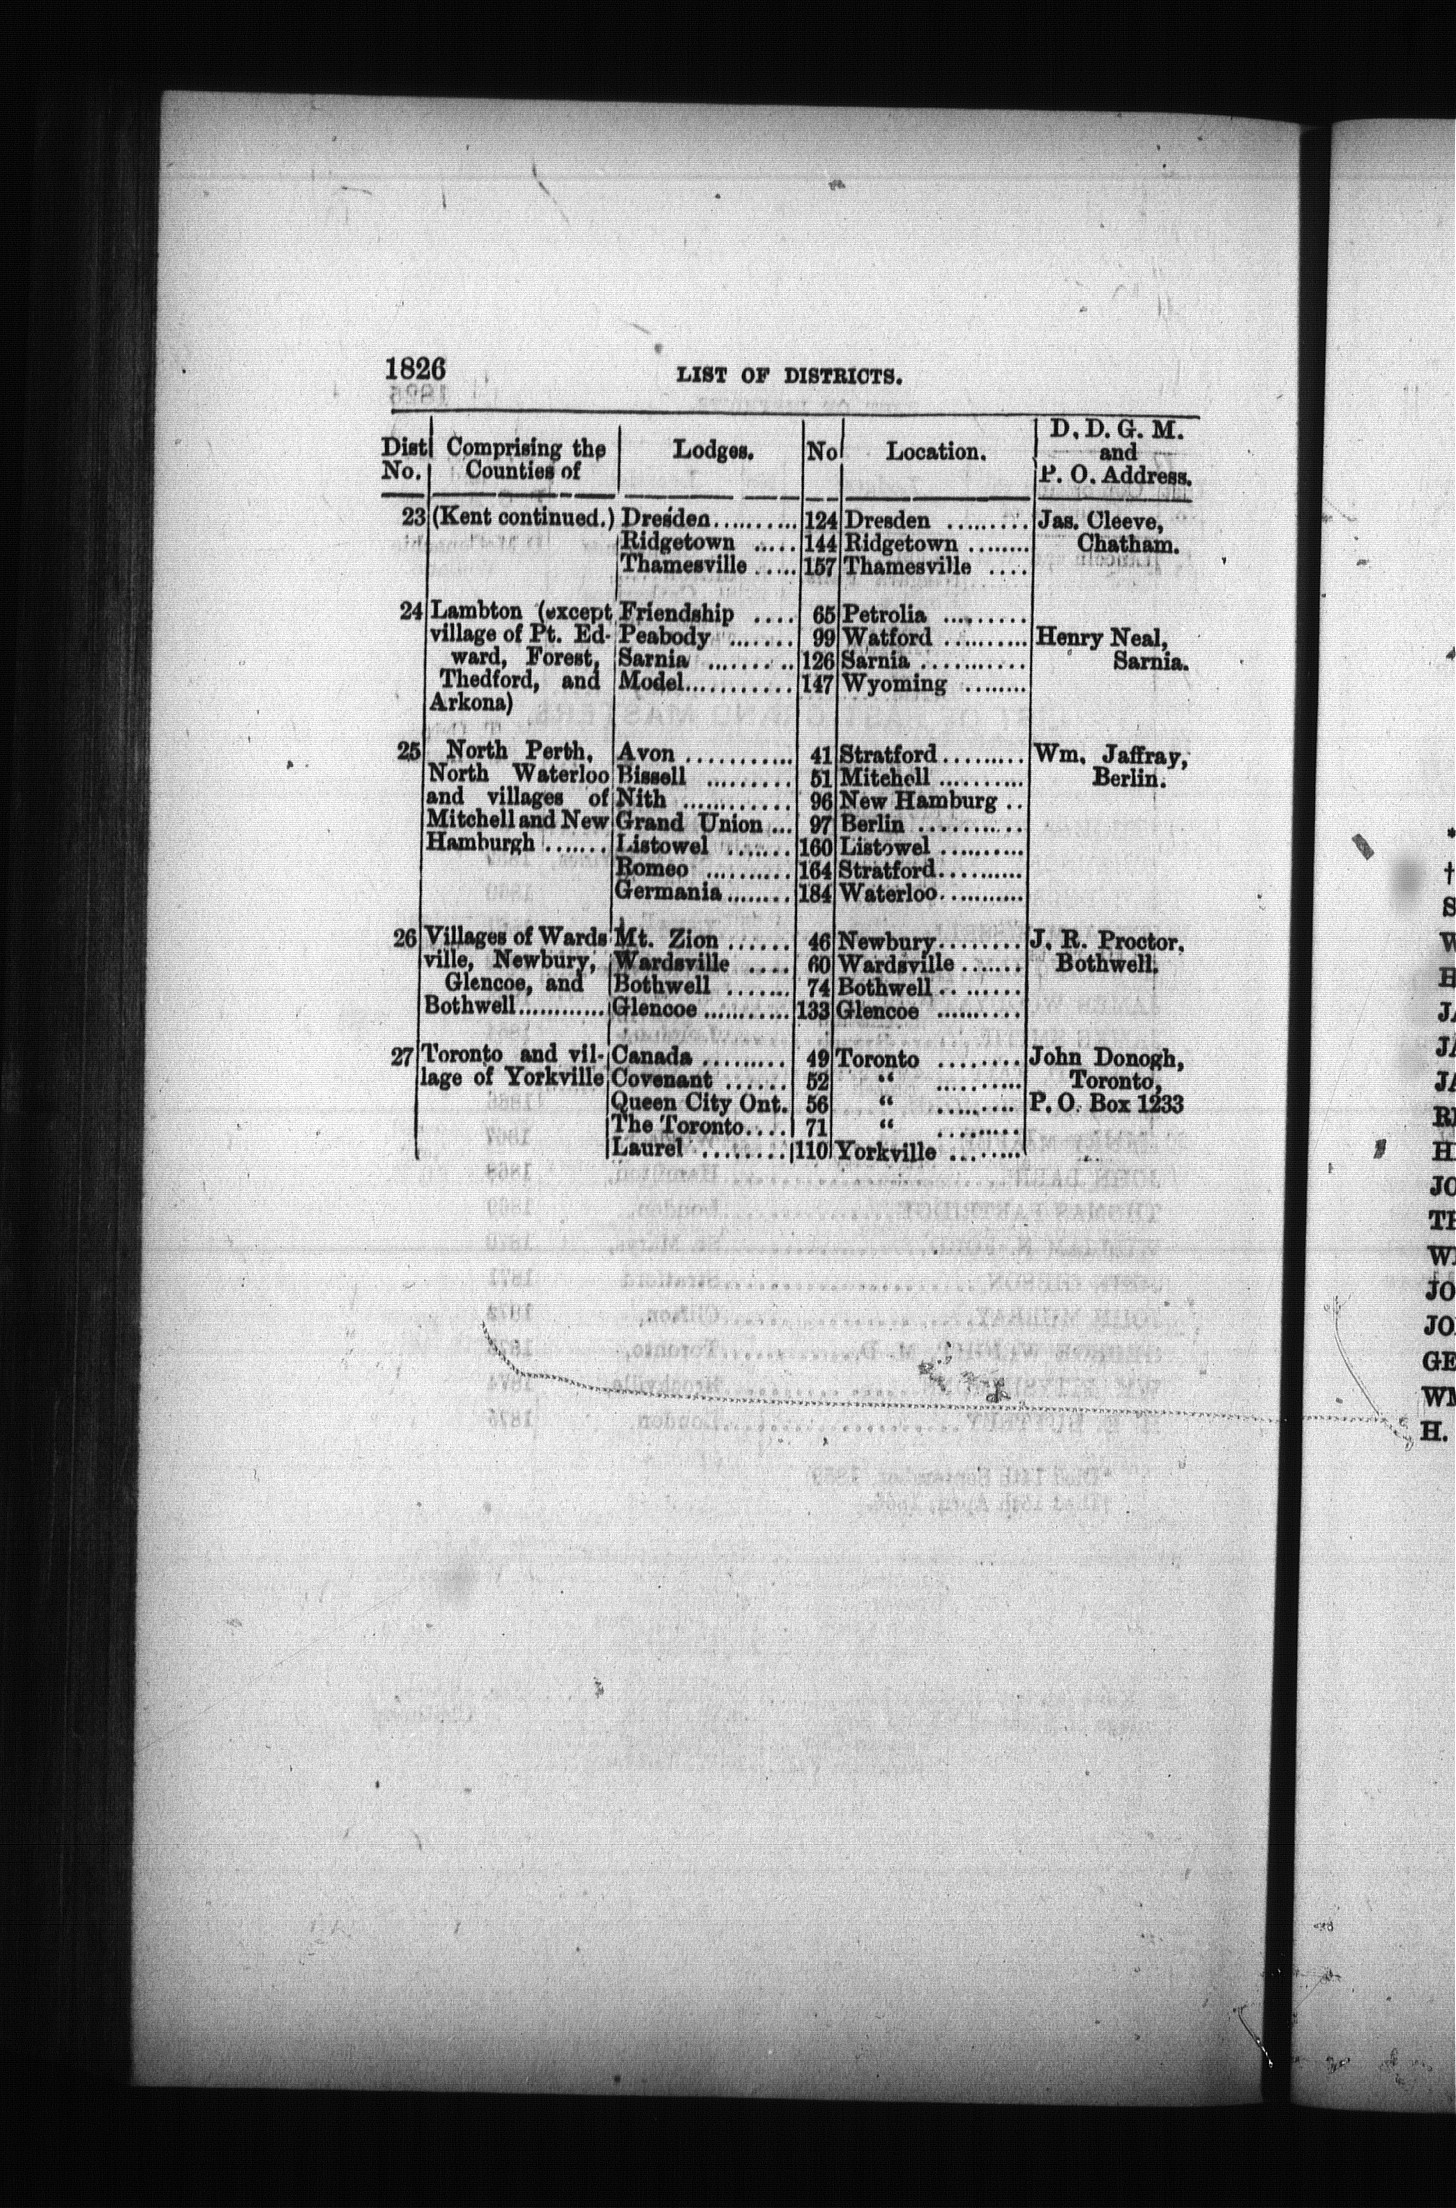 1826 LIST OF DISTRICTS.
Dist No. | Comprising the Counties of | Lodges. | No | Location. | D. D. G. M. and P. O. Address.
23 (Kent continued.) Dresden.......... 124 Dresden ......... Jas. Cleeve,
Ridgetown ..... 144 Ridgetown ........ Chatham.
Thamesville ..... 157 Thamesville ....
24 Lambton (except Friendship .... 65 Petrolia .........
village of Pt. Ed- Peabody ....... 99 Watford .......... Henry Neal,
ward, Forest, Sarnia ......... 126 Sarnia ........... Sarnia.
Thedford, and Model........... 147 Wyoming ........
Arkona)
25 North Perth, Avon ........... 41 Stratford......... Wm. Jaffray,
North Waterloo Bissell ......... 51 Mitchell .......... Berlin.
and villages of Nith ............ 96 New Hamburg ..
Mitchell and New Grand Union ... 97 Berlin ...........
Hamburgh ....... Listowel ....... 160 Listowel ..........
Romeo .......... 164 Stratford..........
Germania........ 184 Waterloo...........
26 Villages of Wards Mt. Zion ...... 46 Newbury........ J. R. Proctor,
ville, Newbury, Wardsville .... 60 Wardsville ....... Bothwell.
Glencoe, and Bothwell ....... 74 Bothwell.........
Bothwell............ Glencoe ........... 133 Glencoe ..........
27 Toronto and vil- Canada ......... 49 Toronto ........ John Donogh,
lage of Yorkville Covenant ...... 52 “ .......... Toronto,
Queen City Ont. 56 “ ......... P. O. Box 1233
The Toronto.... 71 “ .........
Laurel ........ 110 Yorkville ........
*
†
S
W
H
JA
JA
JA
H
JO
TH
WI
JO
JO
GE
WM
H.